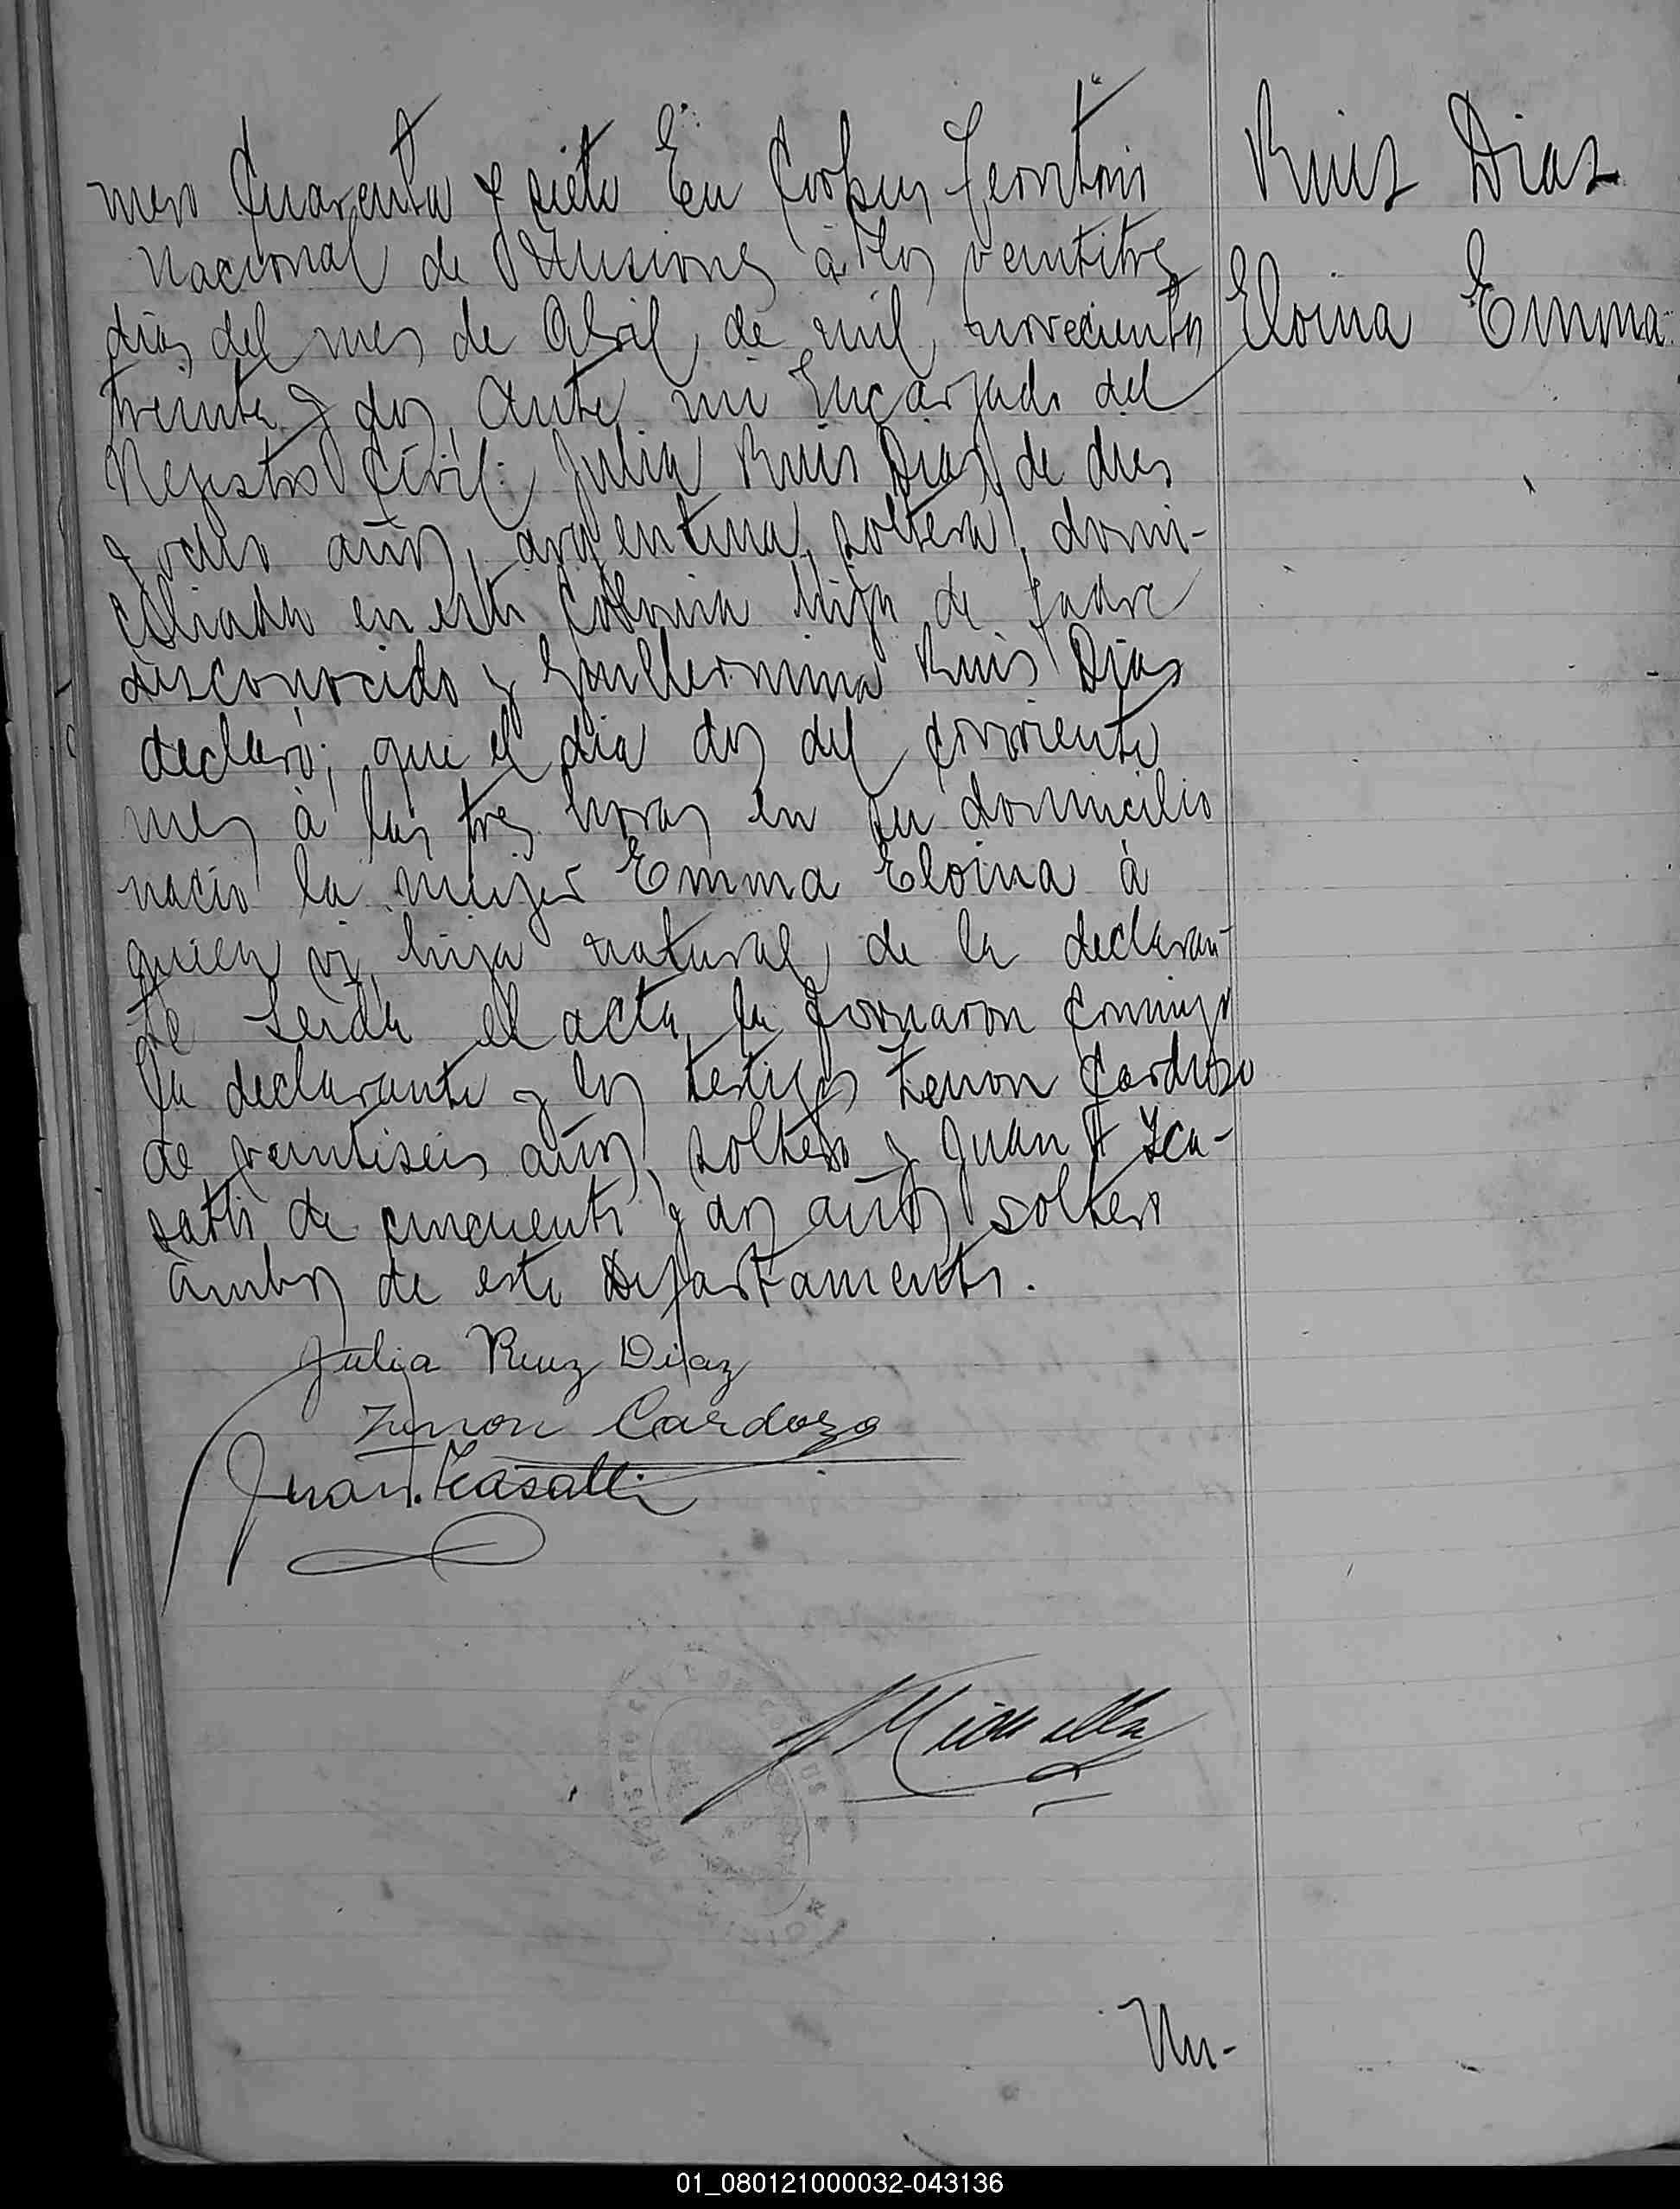 mero Cuarenta y siete En Corpus Territorio
Nacional de Misiones á los veintitres
dias del mes de Abril de mil novecientos
treinta y dos, Ante mi Encargado del
Rejistro Civil: Julia Ruis Dias de dies
y ocho años, argentina, soltera, domi-
ciliada en esta Colonia hija de padre
desconocido y Guillermina Ruis Dias
declaró; que el dia dos del corriente
mes á las tres horas en su domicilio
nació la mujer Emma Eloina á
quien vi, hija natural de la declaran-
te Leida el acta, la firmaron conmigo
la declarante y los testigos Zenon Cardozo
de veintiseis años, soltero y Juan F Sca-
satti de cincuenta y dos años soltero
ambos de este Departamento.
Julia Ruiz Diaz
Zenon Cardozo
Juan F. Scasatti
REGISTRO CIVIL DE CORPUS
Nu-
Ruis Dias
Eloina Emma
01_080121000032-043136